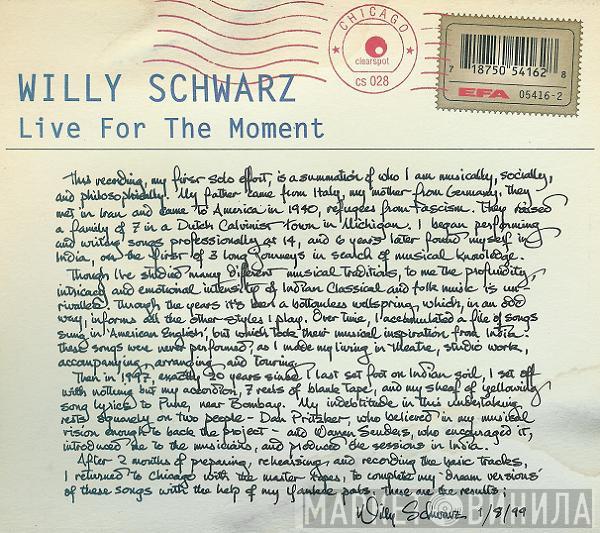 CHICAGO
clearspot
cs 028
7 18750 54162 8
EFA 05416-2
WILLY SCHWARZ
Live For The Moment
This recording, my first solo effort, is a summation of who I am musically, socially,
and philosophically. My father came from Italy, my mother from Germany. They
met in Iran and came to America in 1940, refugees from Fascism. They raised
a family of 7 in a Dutch Calvinist town in Michigan. I began performing
and writing songs professionally at 14, and 6 years later found myself in
India, on the first of 3 long journeys in search of musical knowledge.
Though I've studied many different musical traditions, to me the profundity,
intricacy and emotional intensity of Indian Classical and folk music is un-
rivalled. Through the years it's been a bottomless wellspring, which, in an odd
way, informs all the other styles I play. Over time, I accumulated a file of songs
sung in 'American English', but which took their musical inspiration from India.
These songs were never performed, as I made my living in theatre, studio work,
accompanying, arranging, and touring.
Then in 1997, exactly 20 years since I last set foot on Indian soil, I set off
with nothing but my accordion, 7 reels of blank tape, and my sheaf of yellowing
song lyrics to Pune, near Bombay. My indebtitude in this undertaking
rests squarely on two people - Dan Pritzker, who believed in my musical
vision enough to back the project - and Warren Senders, who encouraged it,
introduced me to the musicians, and produced the sessions in India.
After 2 months of preparing, rehearsing, and recording the basic tracks,
I returned to Chicago with the master tapes, to complete my 'dream versions'
of these songs with the help of my Yankee pals. These are the results:
Willy Schwarz 1/8/99
МАРКЕТ ВИНИЛА